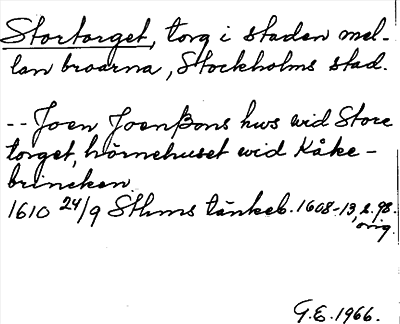 Stortorget, torg i staden mel-
lan broarna, Stockholms stad.
-- Joen Joenßons hws wid Store
torget, hörnehuset wid Kåke-
brincken.
1610 24/9 Sthms tänkeb. 1608-13, s. 98.
orig.
G.E. 1966.